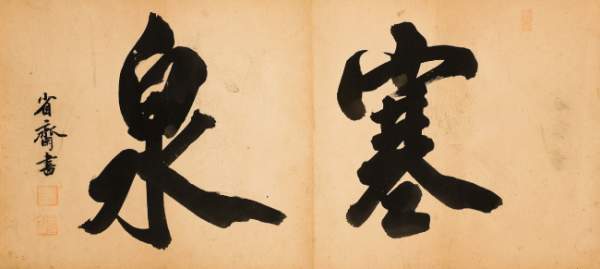 寒泉
省齋書